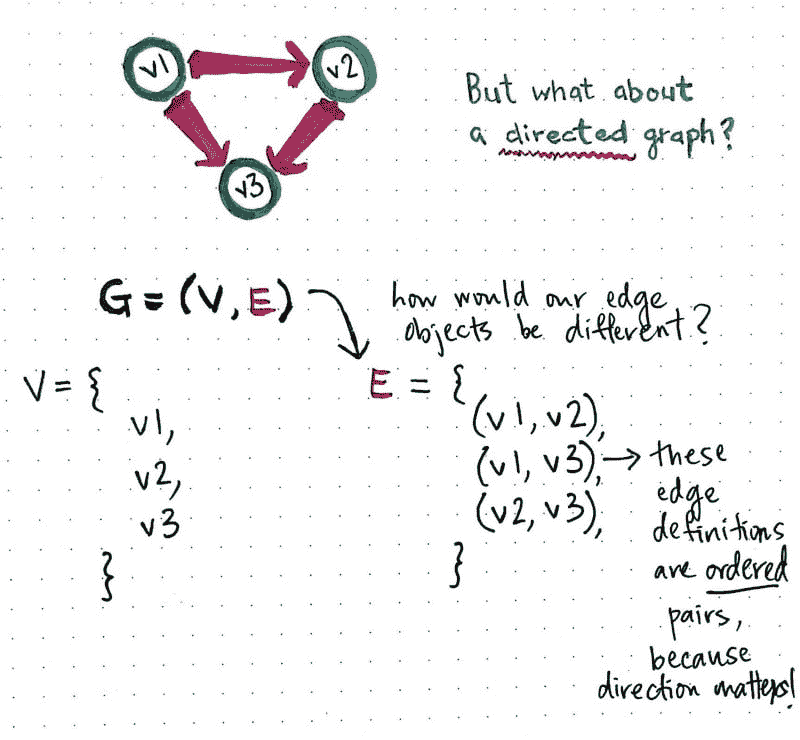 v1
v2
v3
But what about
a directed graph?
G = (V, E)
how would our edge
objects be different?
V = {
v1,
v2,
v3
}
E = {
(v1, v2),
(v1, v3),
(v2, v3),
}
→ these
edge
definitions
are ordered
pairs,
because
direction matters!